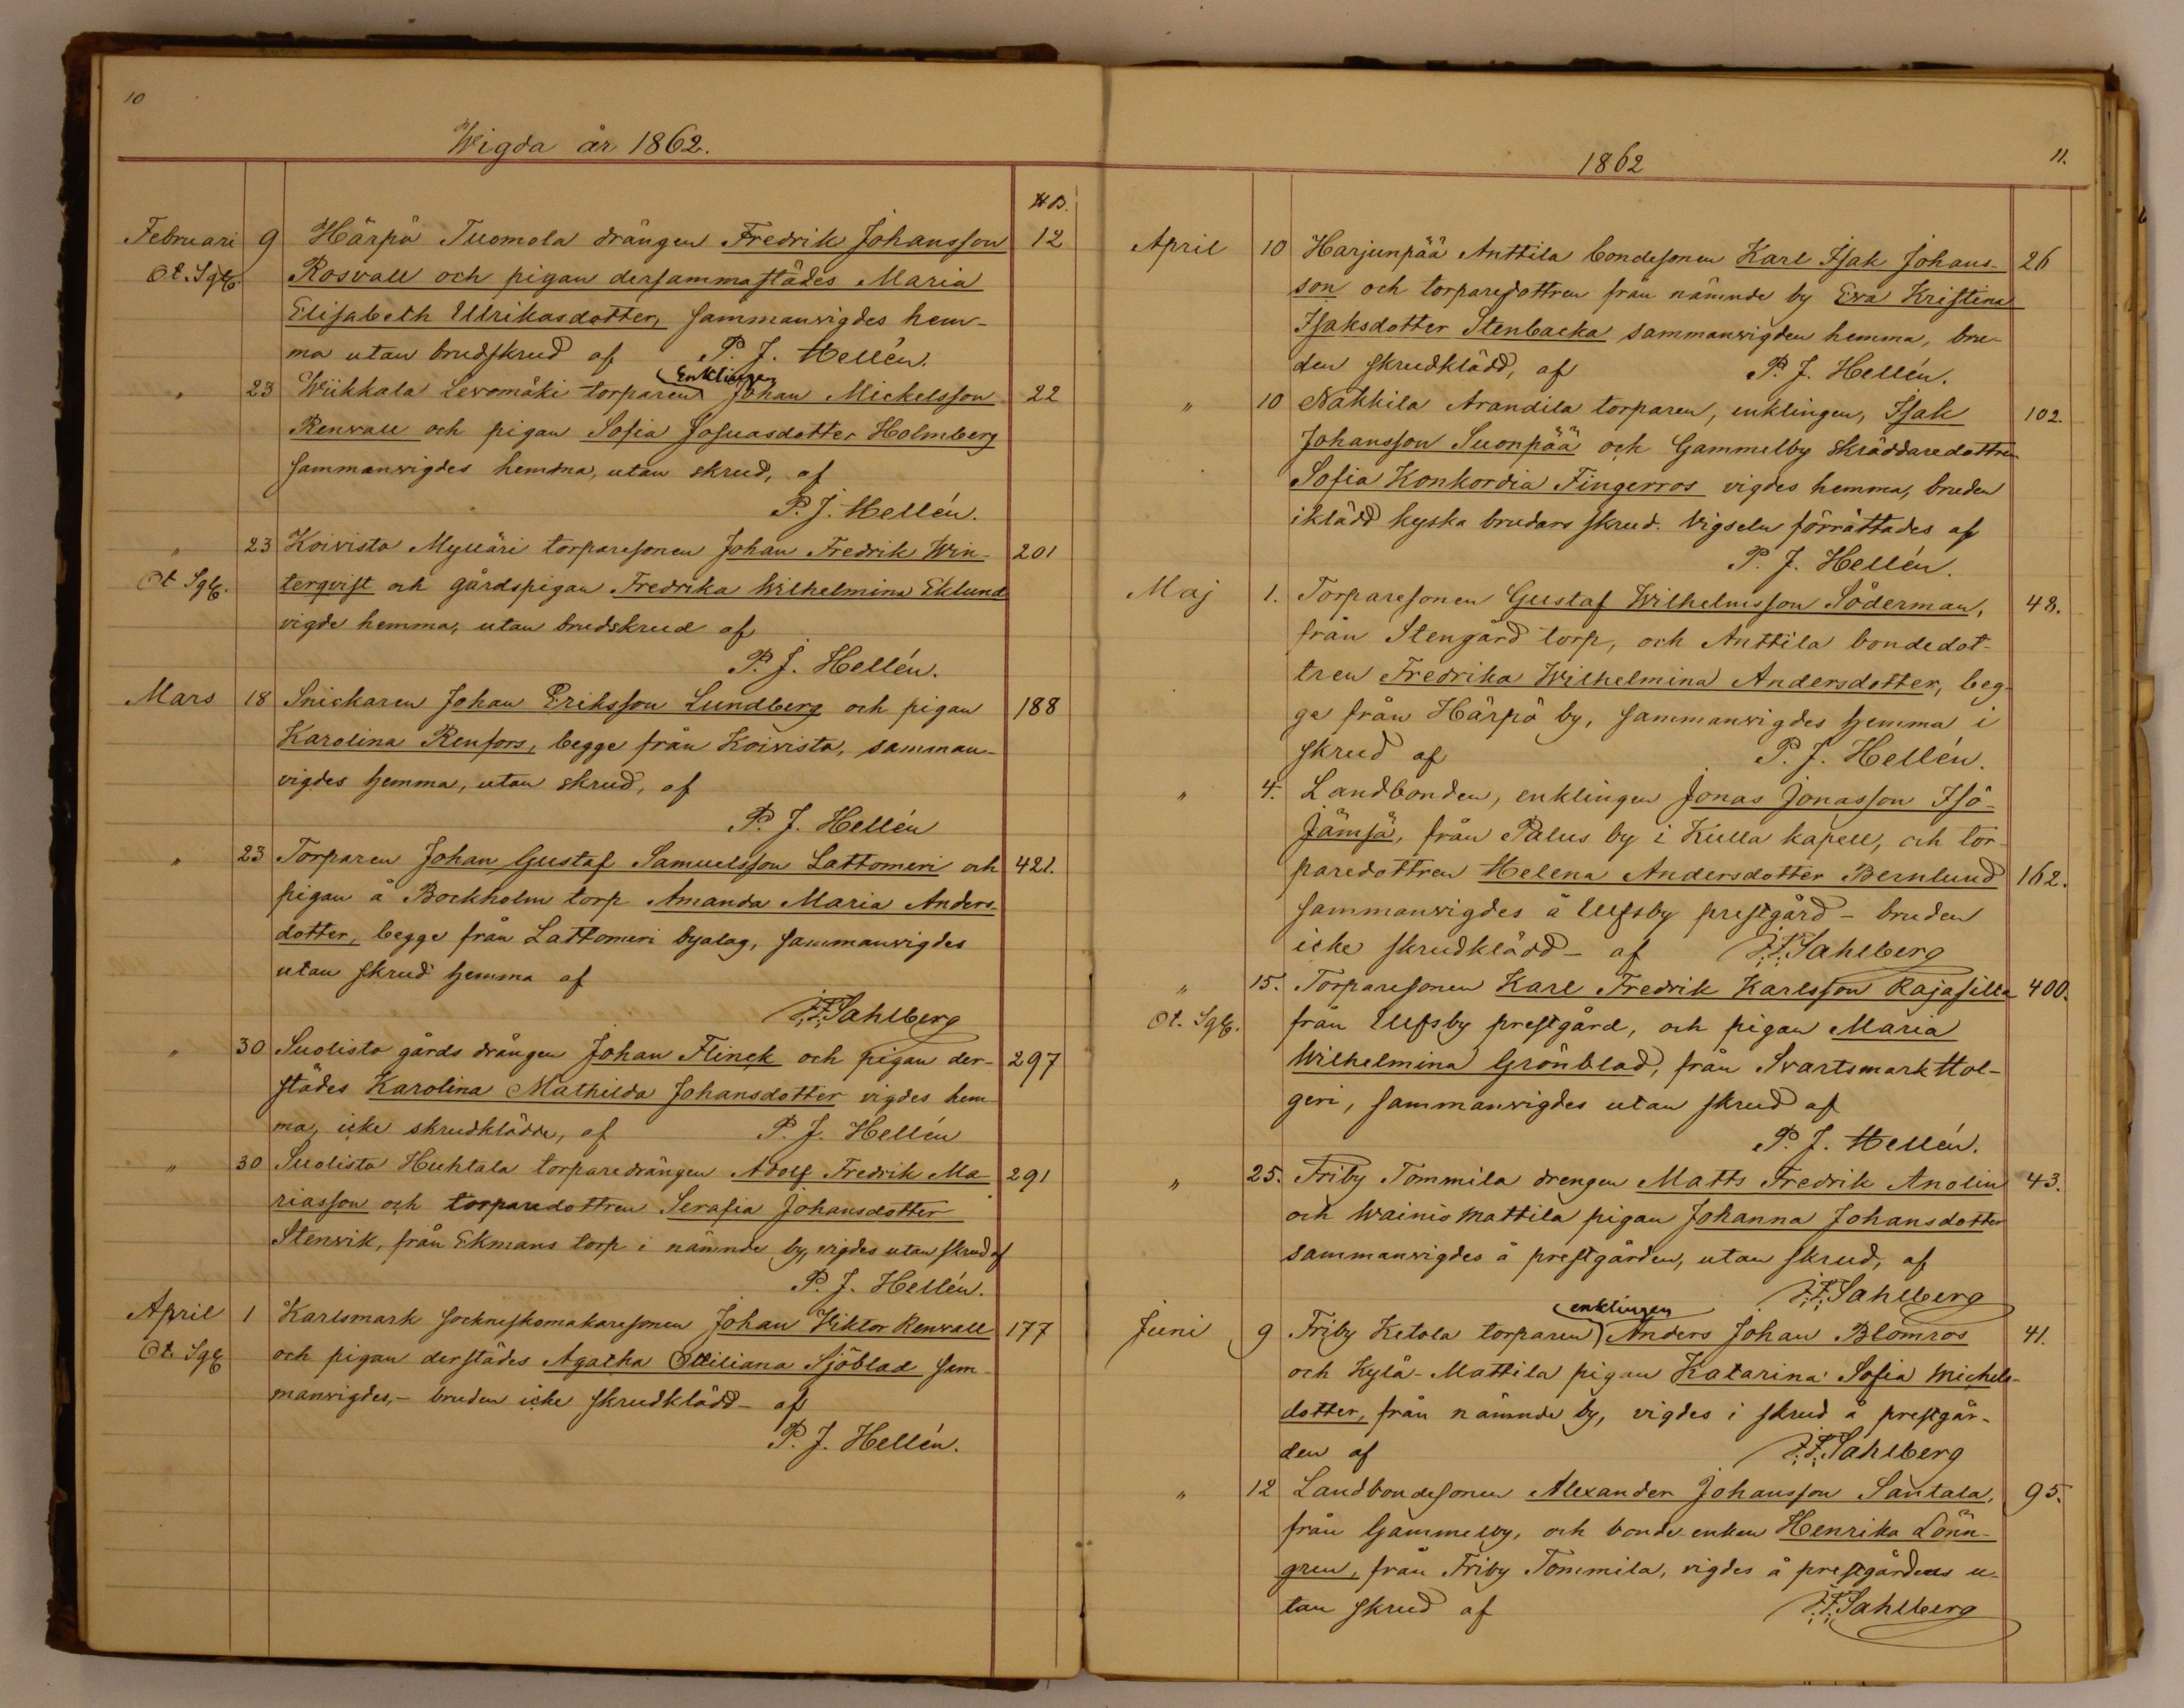 10
Wigda år 1862.
N B.
Februari 9 Härpö Tuomola drängen Fredrik Johansson 12
Rosvall och pigan dersammastädes Maria
Elisabeth Ulrikasdotter, sammanvigdes hem-
ma utan brudskrud af P. J. Hellén.
Enklingen
" 23 Wiikkala Levomäki torparen Johan Mickelsson 22
Renvall och pigan Sofia Josuasdotter Holmberg
sammanvigdes hemma, utan skrud, af
P. J. Hellén.
" 23 Koivisto Mylläri torparesonen Johan Fredrik Win- 201
terqvist och gårdspigan Fredrika Wilhelmina Eklund
vigde hemma, utan brudskrud af
P. J. Hellén.
Mars 18 Snickaren Johan Eriksson Lundberg och pigan 188
Karolina Renfors, begge från Koivisto, samman-
vigdes hemma, utan skrud, af
P. J. Hellén
" 23 Torparen Johan Gustaf Samuelsson Lattomeri och 421.
pigan å Bockholm torp Amanda Maria Anders-
dotter, begge från Lattomeri byalag, sammanvigdes
utan skrud hemma af
Sahlberg
" 30 Suolisto gårds drängen Johan Flinck och pigan der- 297
städes Karolina Mathilda Johansdotter vigdes hem-
ma, icke skrudklädde, af P. J. Hellén
" 30 Suolisto Huhtala torparedrängen Adolf Fredrik Ma- 291
riasson och torparedottren Serafia Johansdotter
Stenvik, från Ekmans torp i nämnde by, vigdes utan skrud af
P. J. Hellén.
April 1 Karlsmark sockneskomakaresonen Johan Viktor Renvall 177
och pigan derstädes Agatha Ottiliana Sjöblad sam-
manvigdes, - bruden icke skrudklädd - af
P. J. Hellén.
11.
1862
April 10 Harjunpää Anttila bondesonen Karl Isak Johans- 26
son och torparedottren från nämnde by Eva Kristina
Isaksdotter Stenbacka sammanvigden hemma, bru-
den skrudklädd, af P. J. Hellén.
" 10 Nakkila Arandila torparen, enklingen, Isak 102.
Johansson Suonpää och Gammelby skräddaredottren
Sofia Konkordia Fingerros vigdes hemma, bruden
iklädd kyska brudars skrud. Vigseln förrättades af
P. J. Hellén.
Maj 1. Torparesonen Gustaf Wilhelmsson Söderman, 48.
från Stengård torp, och Anttila bondedot-
tren Fredrika Wilhelmina Andersdotter, beg-
ge från Härpö by, sammanvigdes hemma i
skrud af P. J. Hellén.
" 4. Landbonden, enklingen Jonas Jonasson Iso-
Jämsä, från Palus by i Kulla kapell, och tor-
paredottren Helena Andersdotter Bernlund 162.
sammanvigdes å Ulfsby prestgård - bruden
icke skrudklädd - af Sahlberg
" 15. Torparesonen Karl Fredrik Karlsson Rajasilla 400.
från Ulfsby prestgård, och pigan Maria
Wilhelmina Grönblad, från Svartsmark Hol-
geri, sammanvigdes utan skrud af
P. J. Hellén.
" 25. Friby Tommila drengen Matts Fredrik Anolin 43.
och Wainio Mattila pigan Johanna Johansdotter
sammanvigdes å prestgården, utan skrud, af
Sahlberg
enklingen
Juni 9 Friby Ketola torparen Anders Johan Blomros 41.
och Kylä-Mattila pigan Katarina Sofia Michels-
dotter, från nämnde by, vigdes i skrud å prestgår-
den af Sahlberg
" 12 Landbondesonen Alexander Johansson Santala, 95.
från Gammelby, och bonde-enkan Henrika Lönn-
gren, från Friby Tommila, vigdes å prestgården u-
tan skrud af Sahlberg